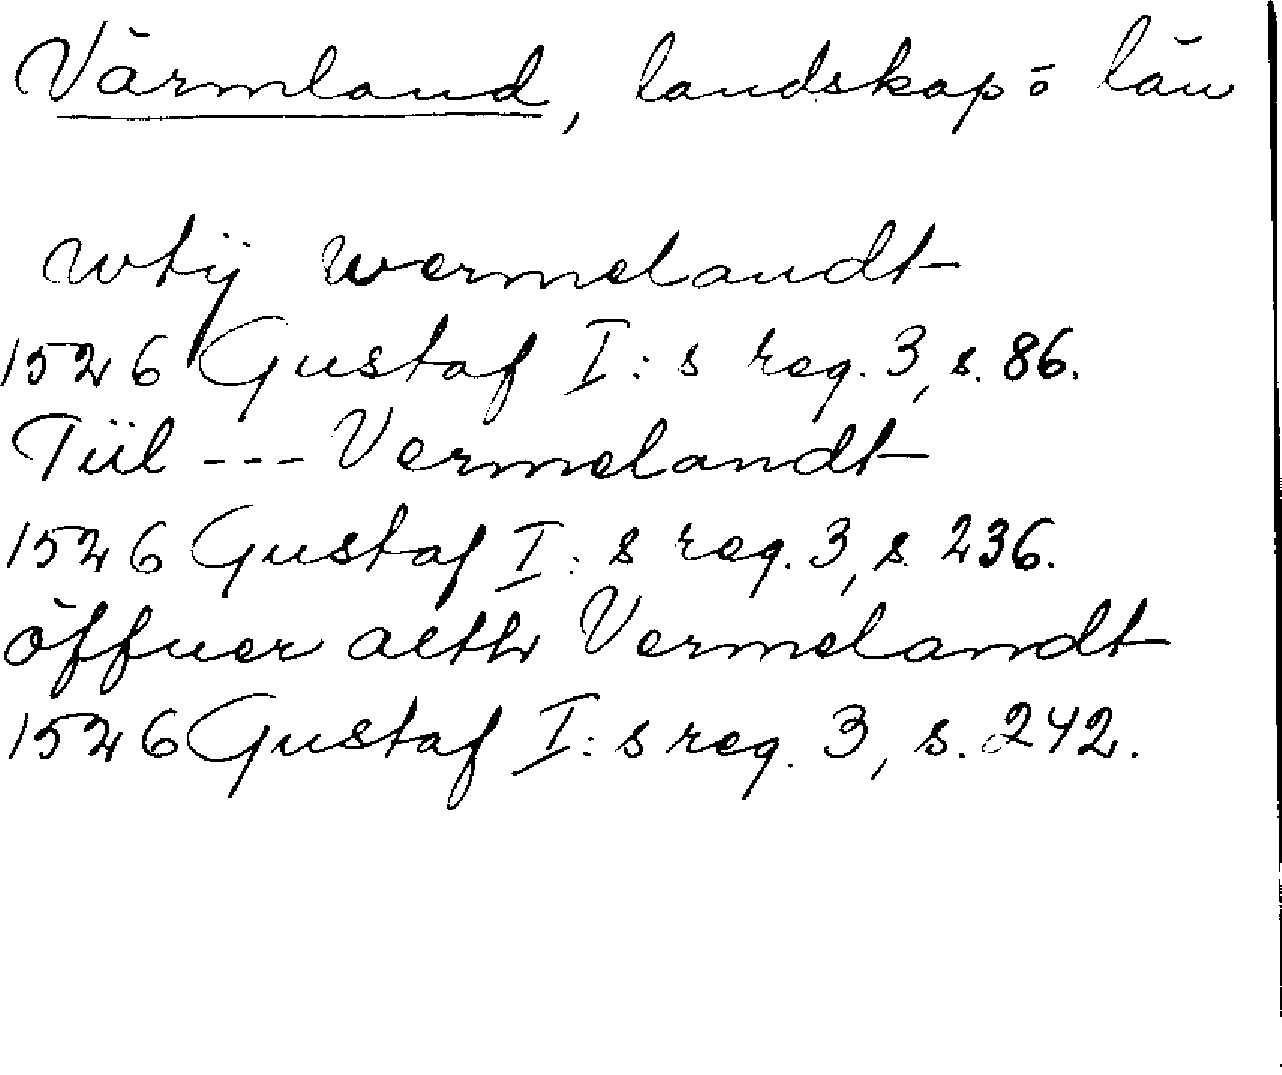 Värmland, landskap o län
wtij wermelandt
1526 Gustaf I:s reg. 3, s. 86.
Tiil --- Vermelandt
1526 Gustaf I:s reg. 3, s. 236.
öffuer alth Vermelandt
1526 Gustaf I:s reg. 3, s. 242.